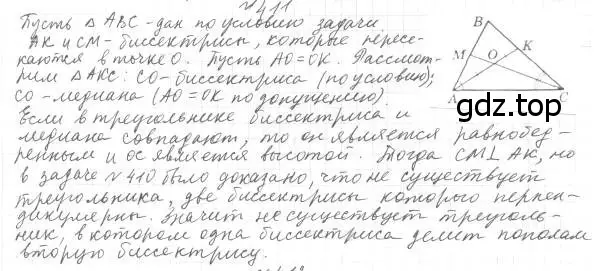 № 411
Пусть △ ABC - дан по условию задачи,
AK и CM - биссектрисы, которые пересе-
каются в точке O. Пусть AO = OK. Рассмот-
рим △ AKC: CO - биссектриса (по условию);
CO - медиана (AO = OK по допущению).
Если в треугольнике биссектриса и
медиана совпадают, то он является равнобед-
ренным и ос является высотой. Тогда CM ⊥ AK, но
в задаче № 410 было доказано, что не существует
треугольника, две биссектрисы которого перпен-
дикулярны. Значит не существует треуголь-
ник, в котором одна биссектриса делит пополам
вторую биссектрису.
B
M
O
K
A
C
gdz.top